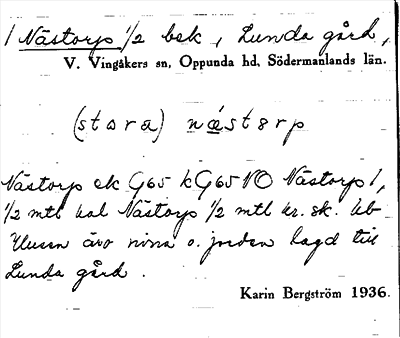 1 Nästorp 1/2 bek, Lunda gård,
V. Vingåkers sn, Oppunda hd, Södermanlands län.
(stora) næstɵrp
Nästorp ek G65 kG65 NO Nästorp 1,
1/2 mtl kal Nästorp 1/2 mtl kr. sk. kb
Husen äro rivna o. jorden lagd till
Lunda gård.
Karin Bergström 1936.